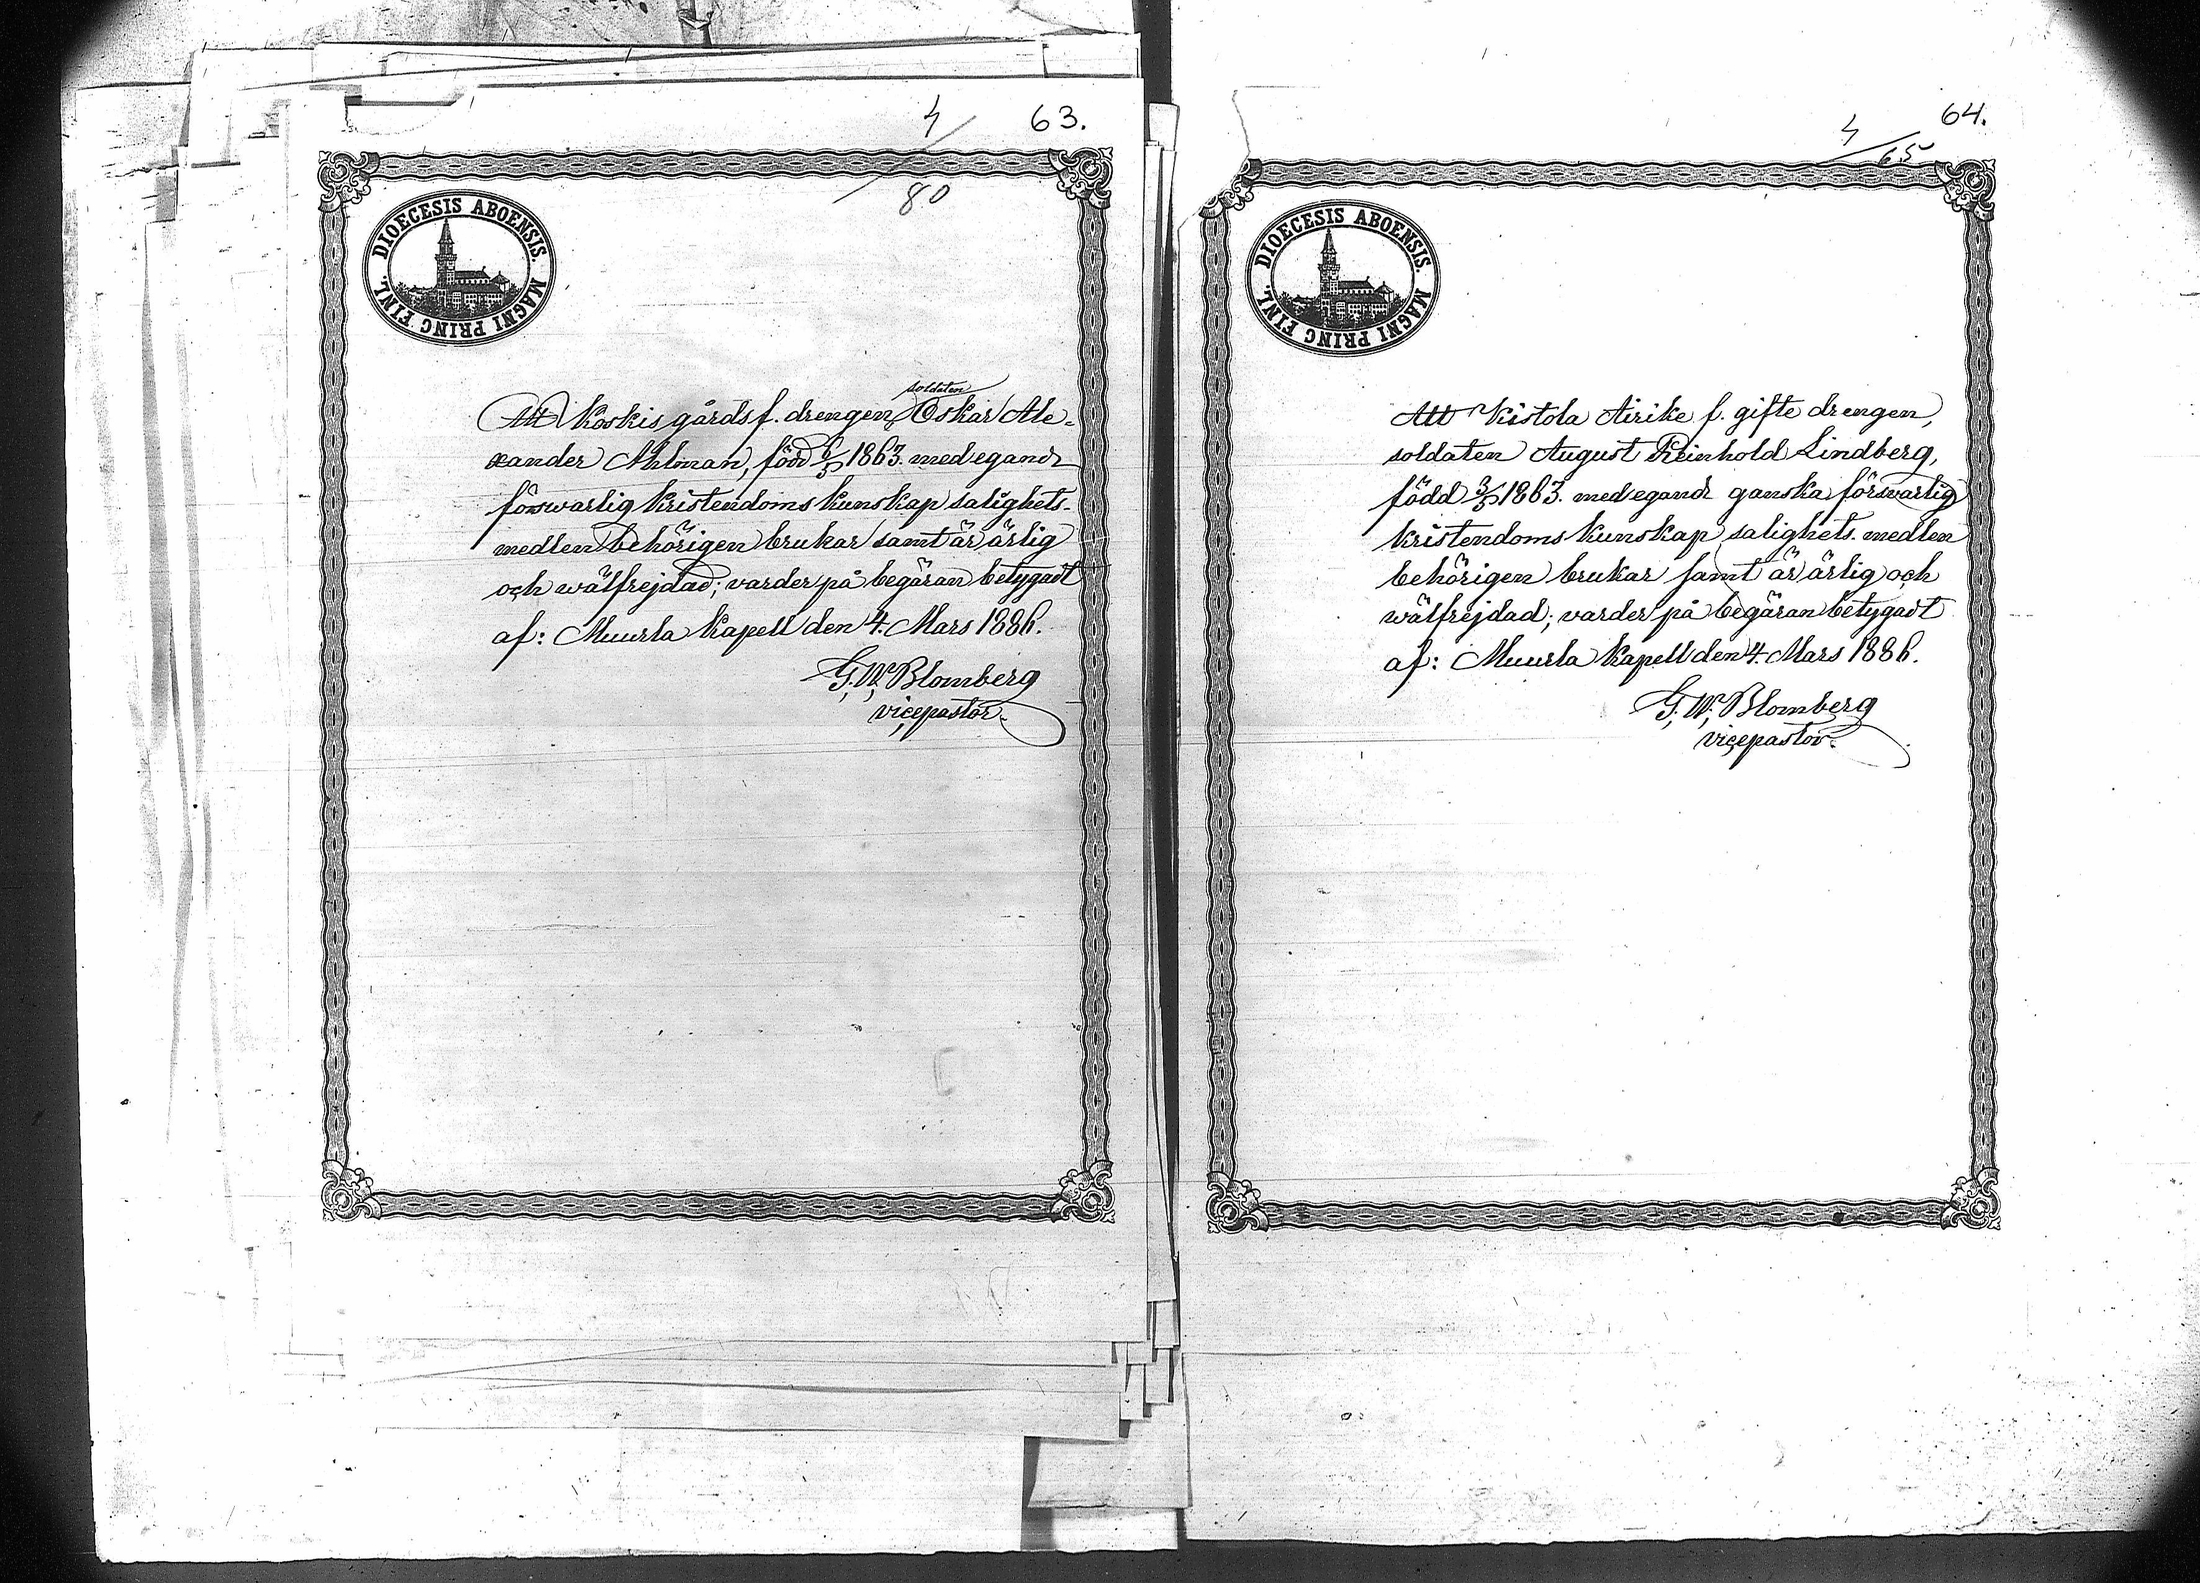 63.
4/80
DIOECESIS ABOENSIS.
MAGNI PRINC FINL.
soldaten
Att Koskis gårds f. drengen, Oskar Ale-
xander Ahlman, född 6/5 1863. med egande
försvarlig kristendoms kunskap salighets-
medlen behörigen brukar samt är ärlig
och wälfrejdad; varder på begäran betygadt
af: Muurla Kapell den 4. Mars 1886.
G. W. Blomberg
vicepastor.
64.
4/65
DIOECESIS ABOENSIS.
MAGNI PRINC FINL.
Att Kistola Airike f. gifte drengen,
soldaten August Reinhold Lindberg,
född 3/5 1863. med egande ganska försvarlig
kristendoms kunskap salighets. medlen
behörigen brukar samt är ärlig och
wälfrejdad; varder på begäran betygadt
af: Muurla Kapell den 4. Mars 1886.
G. W. Blomberg
vicepastor.